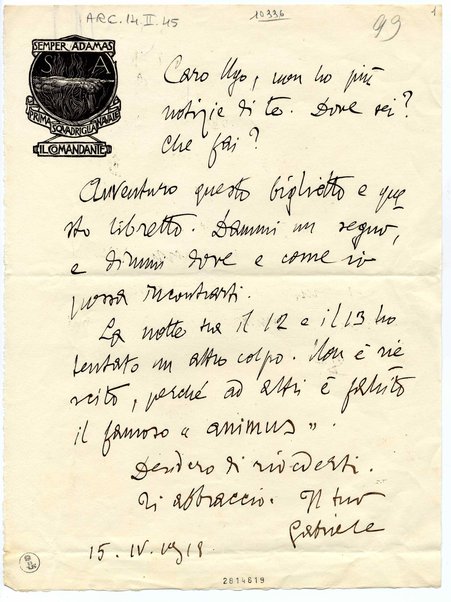 ARC. 14. II. 45
10336
93
1
SEMPER ADAMAS
S A
PRIMA SQUADRIGLIA NAVALE
IL COMANDANTE
Caro Ugo, non ho più
notizie di te. Dove sei?
Che fai?
Avventuro questo biglietto e que
sto libretto. Dammi un segno,
e dimmi dove e come io
possa incontrarti.
La notte tra il 12 e il 13 ho
tentato un altro colpo. Non è rie
scito, perché ad altri è fallito
il famoso "animus".
Desidero di rivederti.
Ti abbraccio. Il tuo
Gabriele
15. IV. 1918
2814619